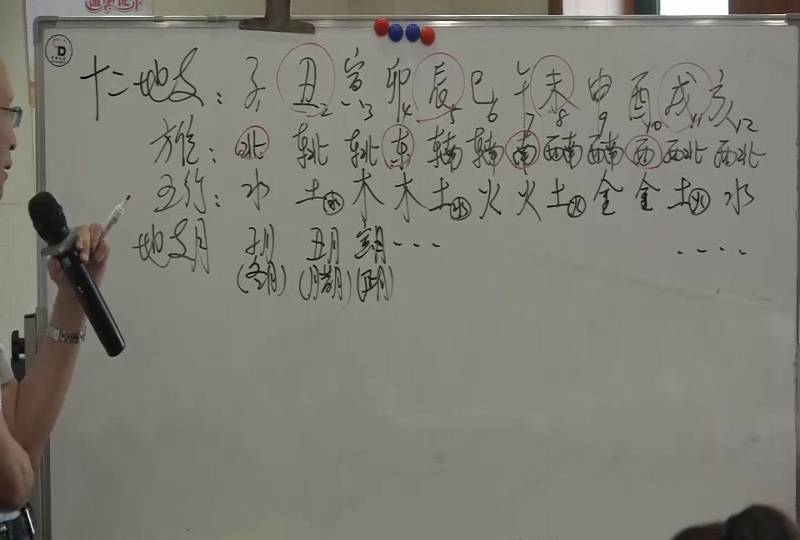 十二地支：子 丑 寅 卯 辰 巳 午 未 申 酉 戌 亥
1 2 3 4 5 6 7 8 9 10 11 12
方位：北 东北 东北 东 东南 东南 南 西南 西南 西 西北 西北
五行：水 土水 木 木 土水 火 火 土火 金 金 土火 水
地支月 子月 丑月 寅月 ... ....
(冬月) (腊月) (正月)
D